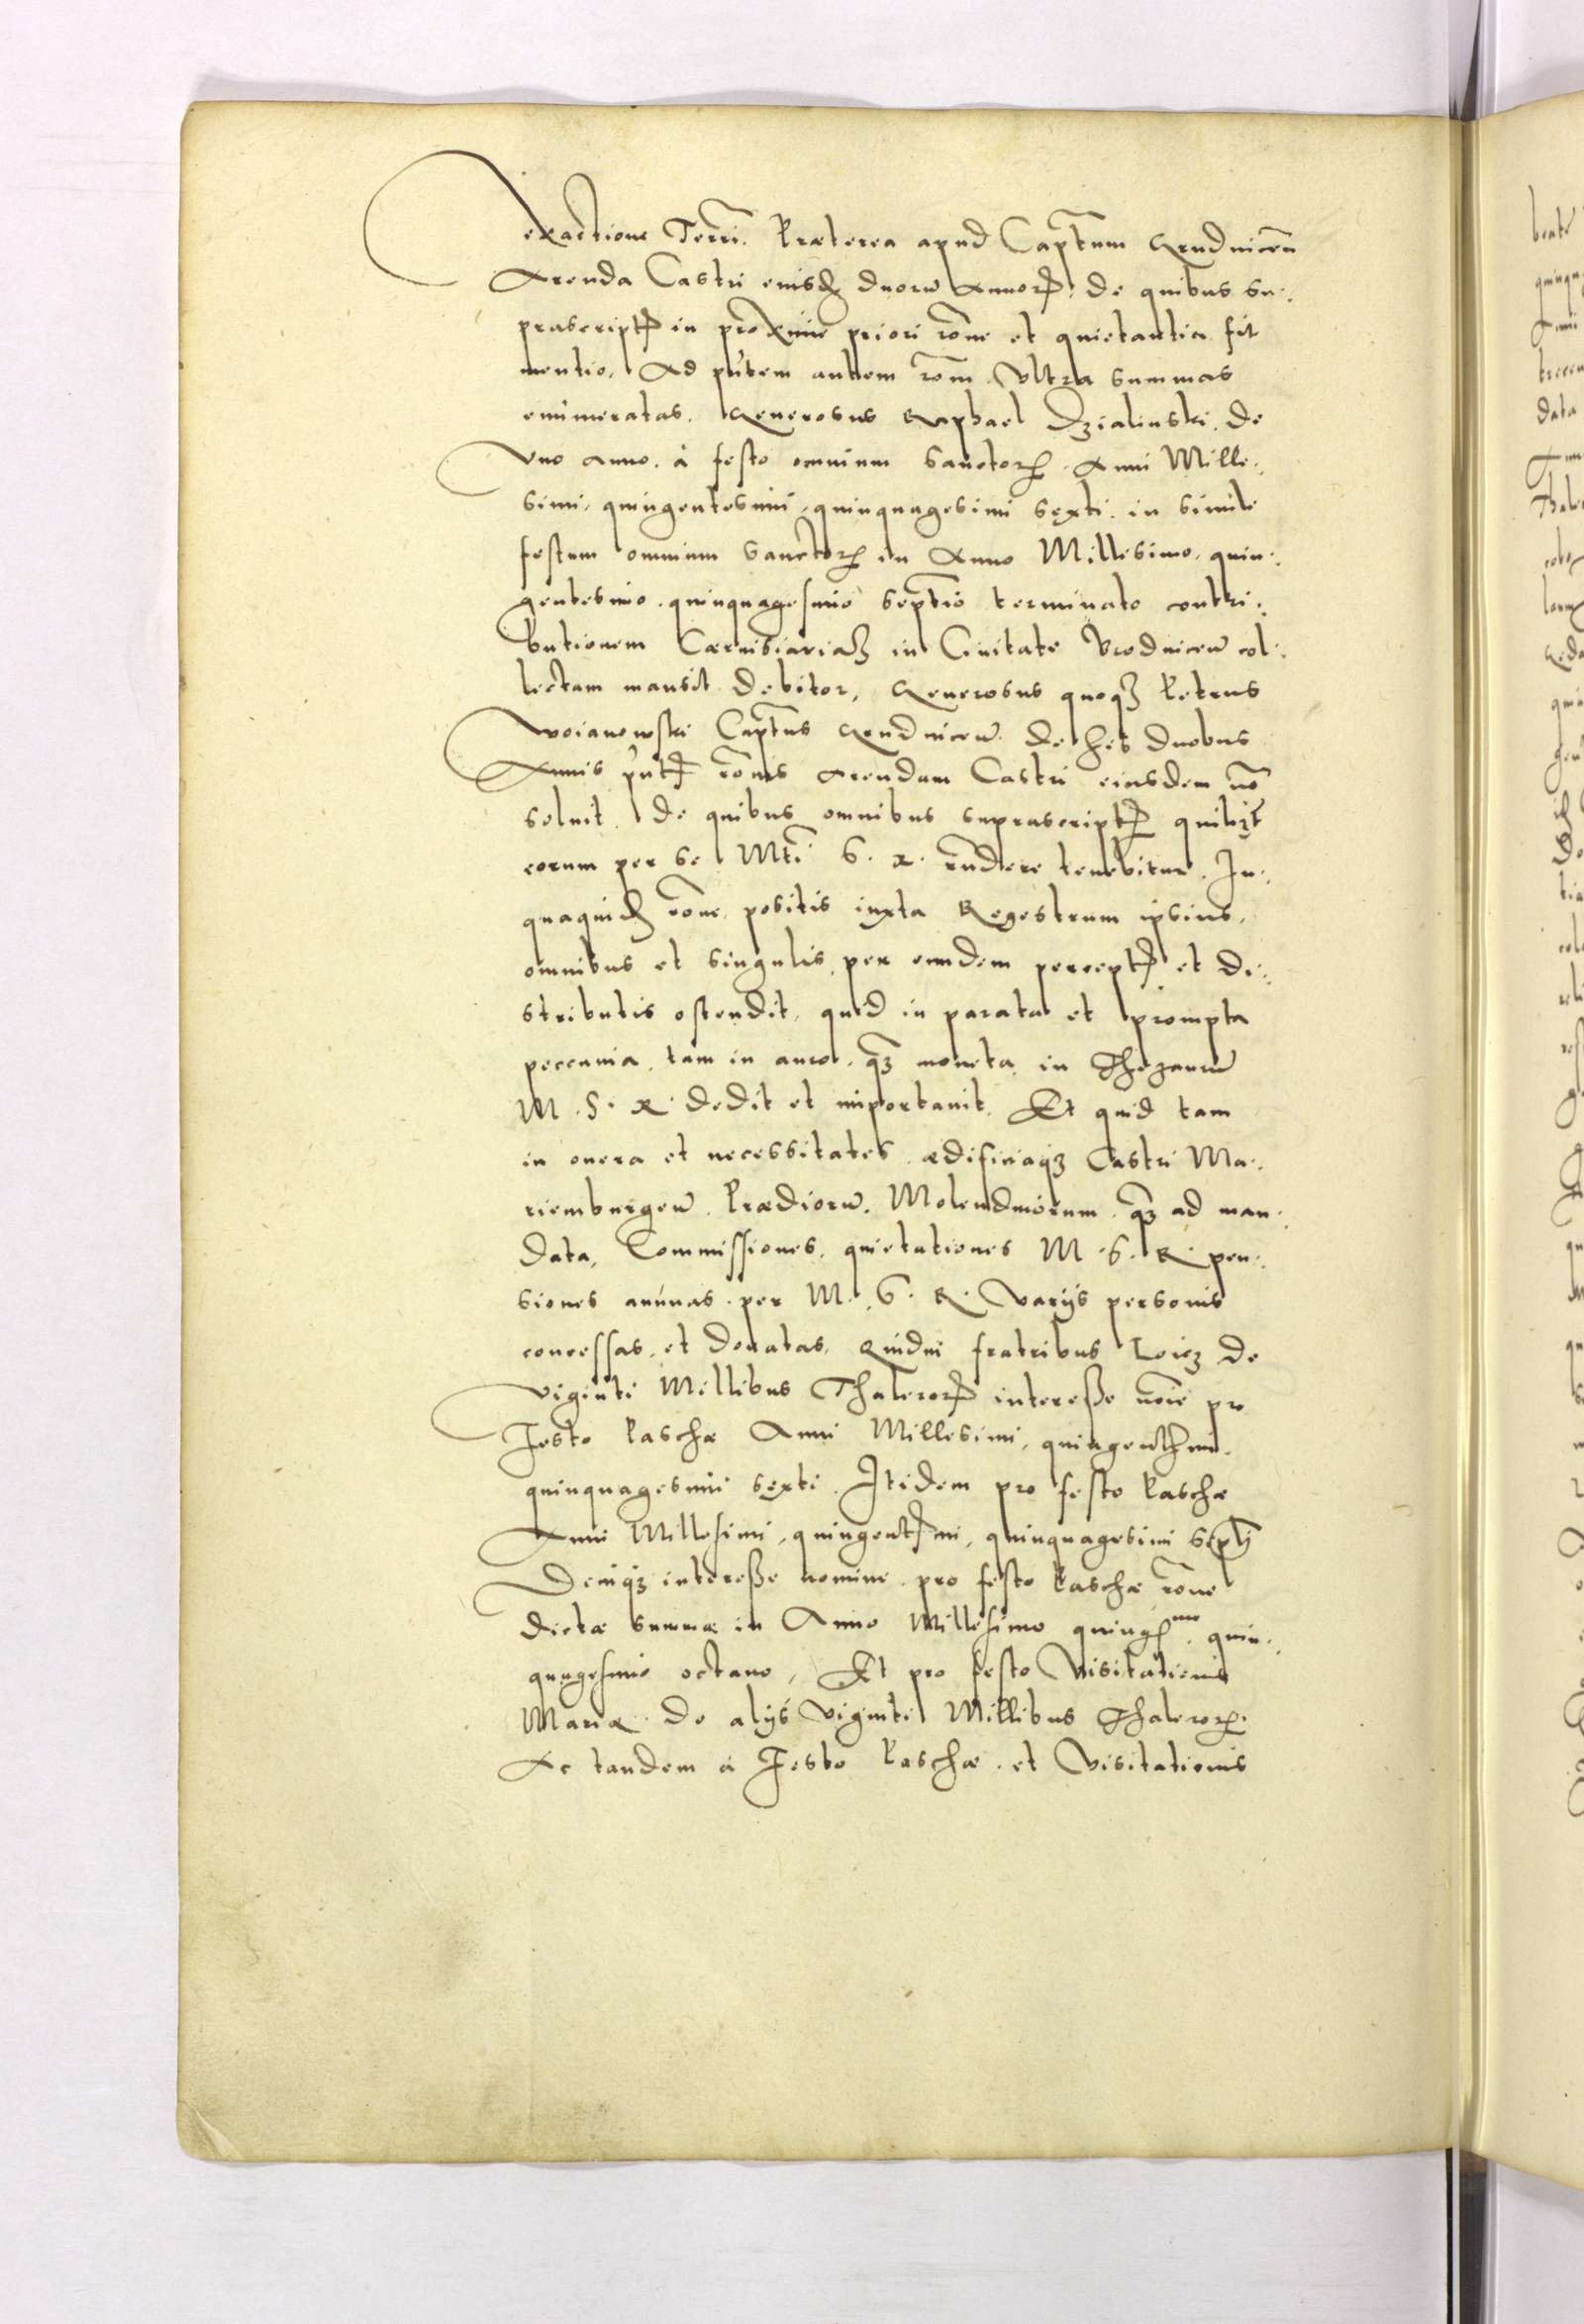 exactione Terri. Præterea apud Capitm Grudnicen
Arenda Castri eiusd duoru Annor. de quibus su:
prascript in proxime priori rone et quietantia fit
mentio. Ad pntem autem rom. Ultra summas
enumeratas. Generosus Raphael Dzialinski. de
Uno anno. à festo omnium Sanctor. Anni Mille:
simi, quingentesimi, quinquagesimi sexti. in simile
festum omnium Sanctor in Anno Millesimo. quin:
gentesimo. quinquagesimo septio terminato contri:
butionem Czernisiariam in Civitate Brodnicen col:
lectam mansit debitor. Generosus quoq Petrus
Woianowski Captus Grudnicen. de his duobus
Annis pnt ronis arendam Castri eiusdem no
soluit. de quibus omnibus suprascript quilizt
eorum per se Mti. S. R. rndere tenebitur. In:
quaquid rone, positis iuxta Regestrum ipsius,
omnibus et singulis per eundem percept et di:
stributis ostendit, quid in parata et prompta
peccunia, tam in auro, qz moneta in Thezauru
M. S. R. dedit et importauit. Et quid tam
in onera et necessitates ædificiaqz Castri Ma:
riemburgen. Prædioru. Molendinorum. qz ad man:
data, Commissiones, quietationes M. S. R. pen:
siones annuas per M. S. R. varijs personis
concessas, et donatas. Quidni fratribus Loicz de
viginti Millibus Thaleror interesse noie pro
Festo Paschæ Anni Millesimi, quingentmi.
quinquagesimi sexti. Itidem pro festo Paschæ
Anni Millesimi, quingentmi, quinquagesimi septi
Deniqz interesse nomine pro festo Paschæ rone
dictæ summæ in Anno Millesimo quingmo. quin:
quagesimo octauo. Et pro festo Visitationis
Mariæ de alijs viginti Millibus Thaleror.
Ac tandem à Festo Paschæ. et Visitationis